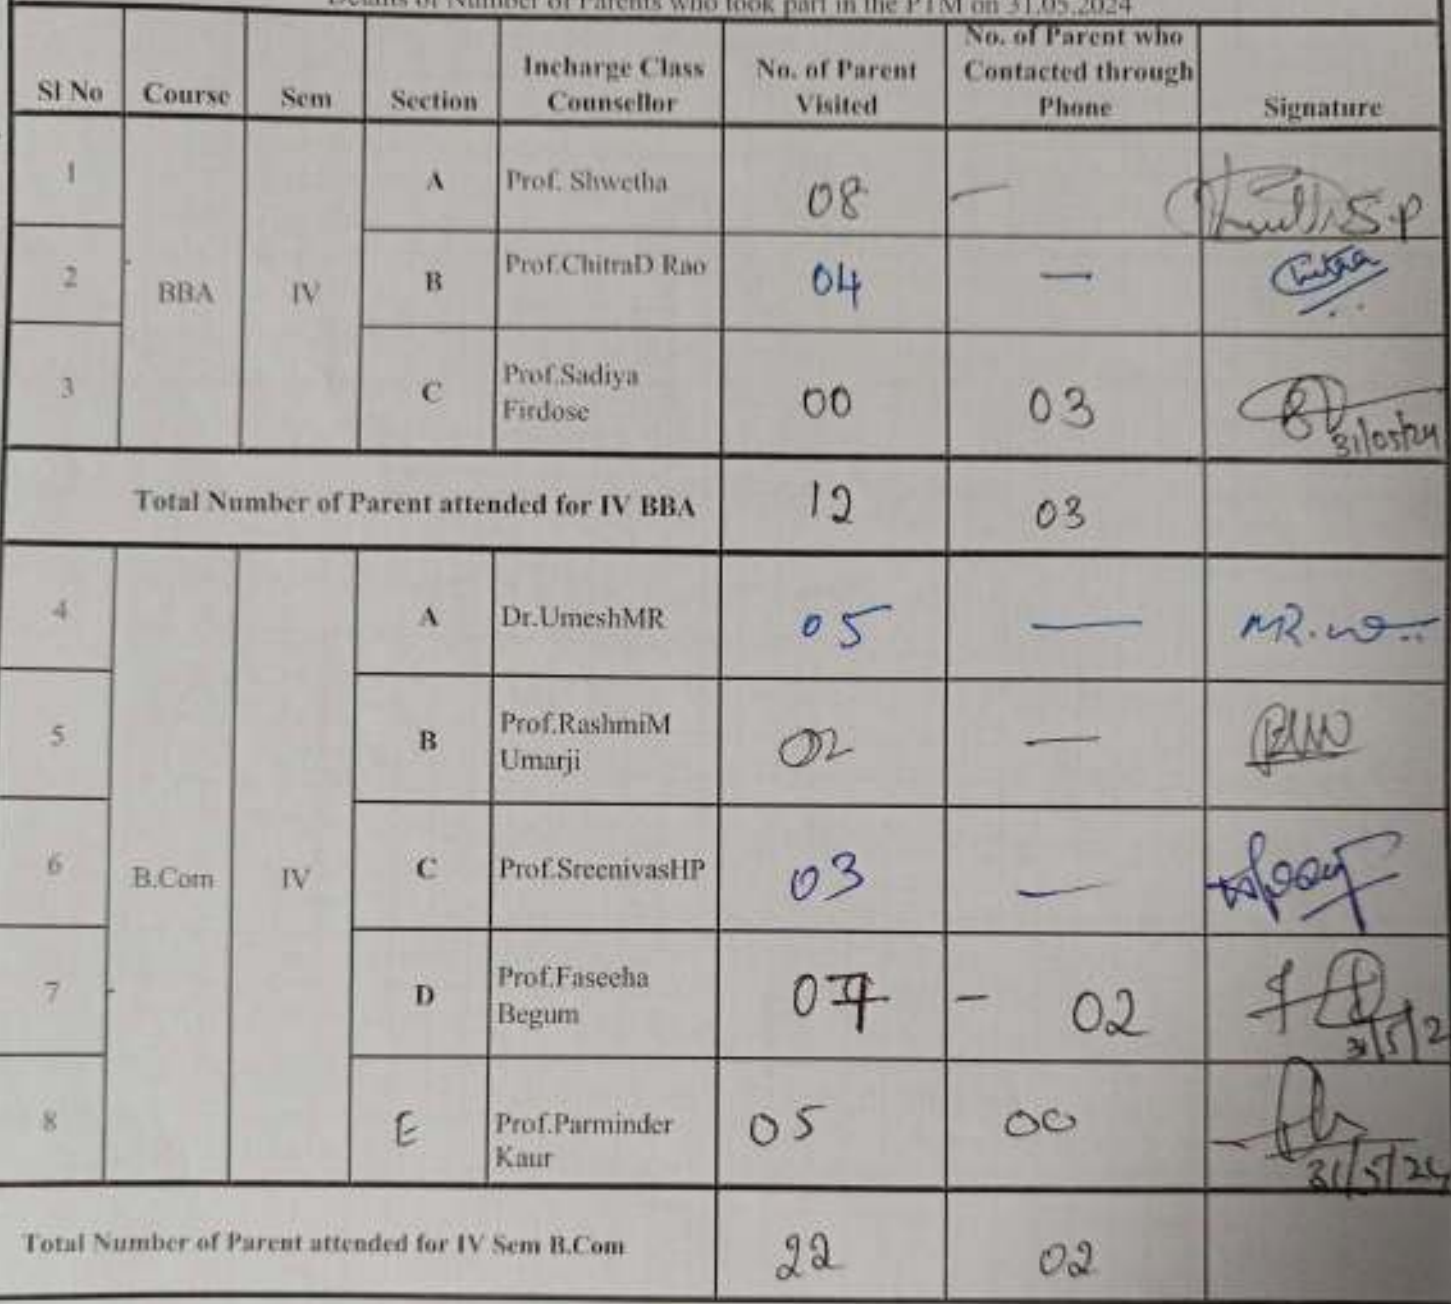 Details of Number of Parents who took part in the PTM on 31.05.2024
Sl No Course Sem Section Incharge Class Counsellor No. of Parent Visited No. of Parent who Contacted through Phone Signature
1 BBA IV A Prof. Shwetha 08 – S.P
2 B Prof.ChitraD Rao 04 — Chitra
3 C Prof.Sadiya Firdose 00 03 31/05/24
Total Number of Parent attended for IV BBA 12 03
4 B.Com IV A Dr.UmeshMR 05 — MR.
5 B Prof.RashmiM Umarji 02 —
6 C Prof.SreenivasHP 03 —
7 D Prof.Faseeha Begum 07 – 02 31/5/2
8 E Prof.Parminder Kaur 05 00 31/5/24
Total Number of Parent attended for IV Sem B.Com 22 02